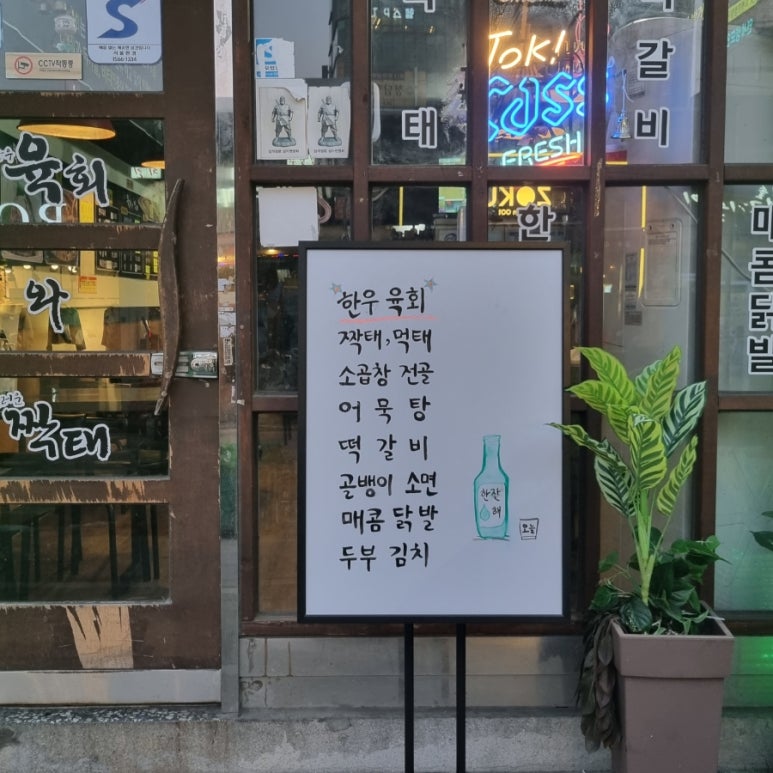 CCTV작동중
육회
와
짝태
태
갈
비
TOK!
CASS
FRESH
ZOKU
한
매
콤
닭
발
한우 육회
짝태, 먹태
소곱창 전골
어묵탕
떡갈비
골뱅이 소면
매콤닭발
두부 김치
한잔
해
오늘